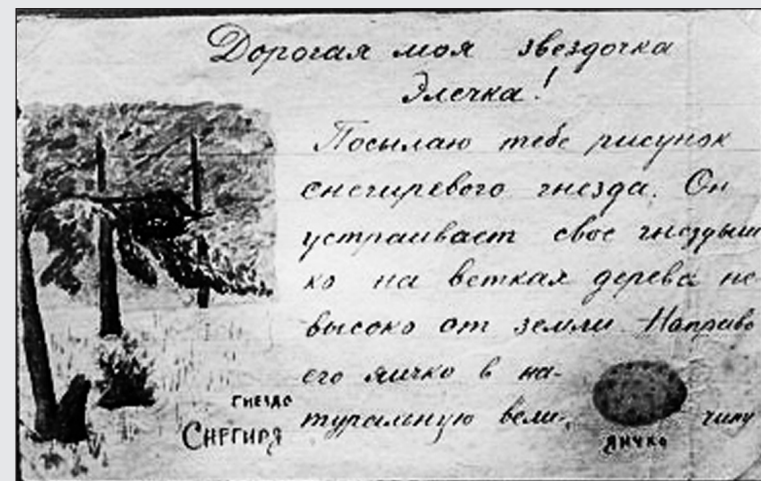 Дорогая моя звездочка
Элечка!
Посылаю тебе рисунок
снегиревого гнезда. Он
устраивает свое гнездыш
ко на ветках дерева не
высоко от земли Направо
его яичко в на-
туральную вели- чину
гнездо
Снегиря
яичко